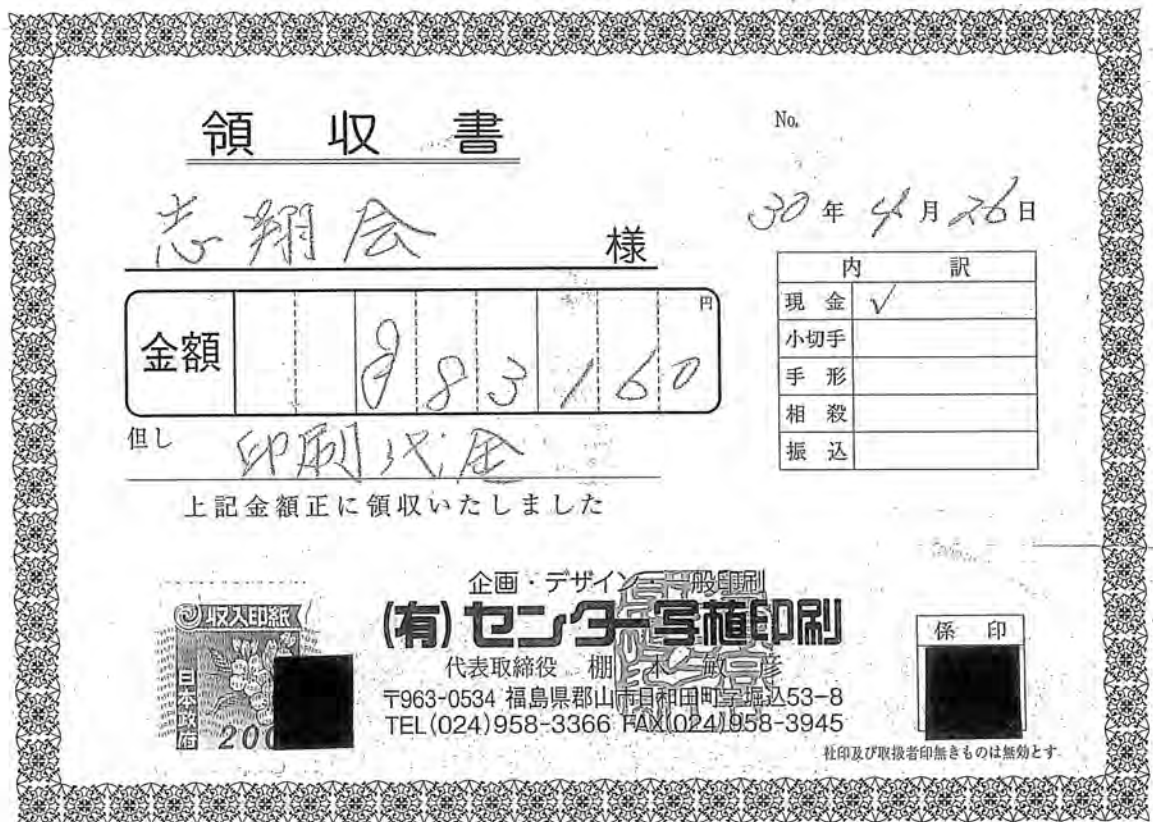 領収書
No.
志翔会 様
30年4月26日
内訳
現金 ✓
小切手
手形
相殺
振込
金額 83160 円
但し 印刷代金
上記金額正に領収いたしました
収入印紙
日本政府
200
企画・デザイン・一般印刷
(有)センター写植印刷
代表取締役 棚木敏彦
〒963-0534 福島県郡山市日和田町字堀込53-8
TEL(024)958-3366 FAX(024)958-3945
係印
社印及び取扱者印無きものは無効とす.